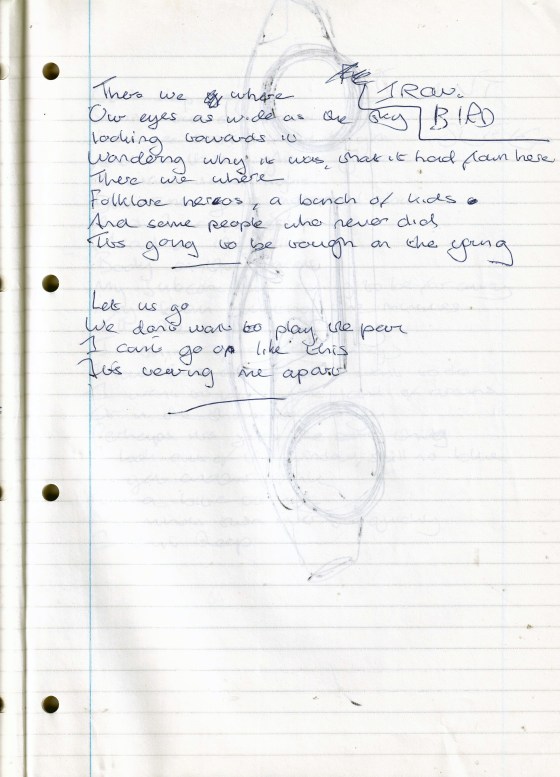 IRON
BIRD
There we where
Our eyes as wide as the sky
Looking towards it
Wondering why it was, that it had flown here
There we where
Folklore heroes, a bunch of kids.
And some people who never did
It's going to be tough on the young
Let us go
We don't want to play the part
I can't go on like this
It's tearing me apart